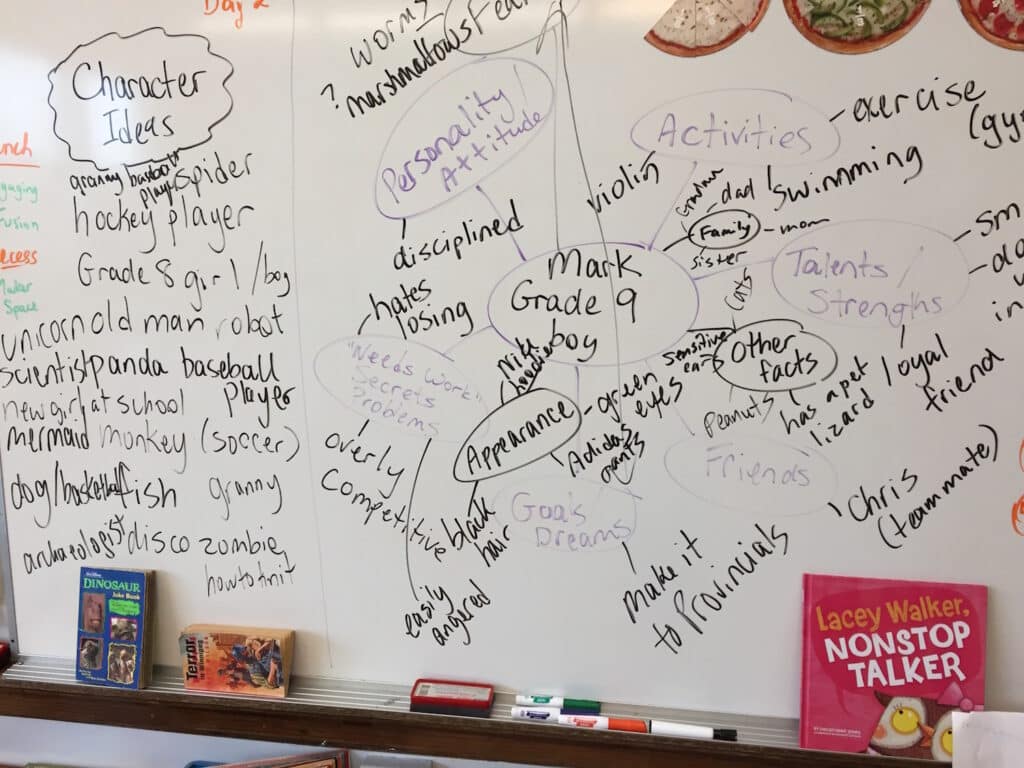 Day 2
Character
Ideas
granny
spider
hockey player
Grade 8 girl/boy
unicorn old man robot
scientist panda baseball
player
new girl at school
mermaid monkey (soccer)
dog/basketball fish granny
archaeologist disco zombie
worms
? marshmallows
Fea
Personality/
Attitude
disciplined
hates
losing
"Needs Work"
Secrets
Problems
overly
Competitive
easily
angered
Mark
Grade 9
boy
Activities
exercise
(gy
swimming
violin
Family
dad
mom
sister
cats
Talents/
Strenghs
sm
loyal
friend
Other
facts
sensitive
ears
Peanuts
has a pet
lizard
Appearance
Nike
hoodie
green
eyes
Adidas
pants
black
hair
Goals
Dreams
make it
to Provincials
Friends
Chris
(teammate)
DINOSAUR
Joke Book
Terror
Lacey Walker,
NONSTOP
TALKER